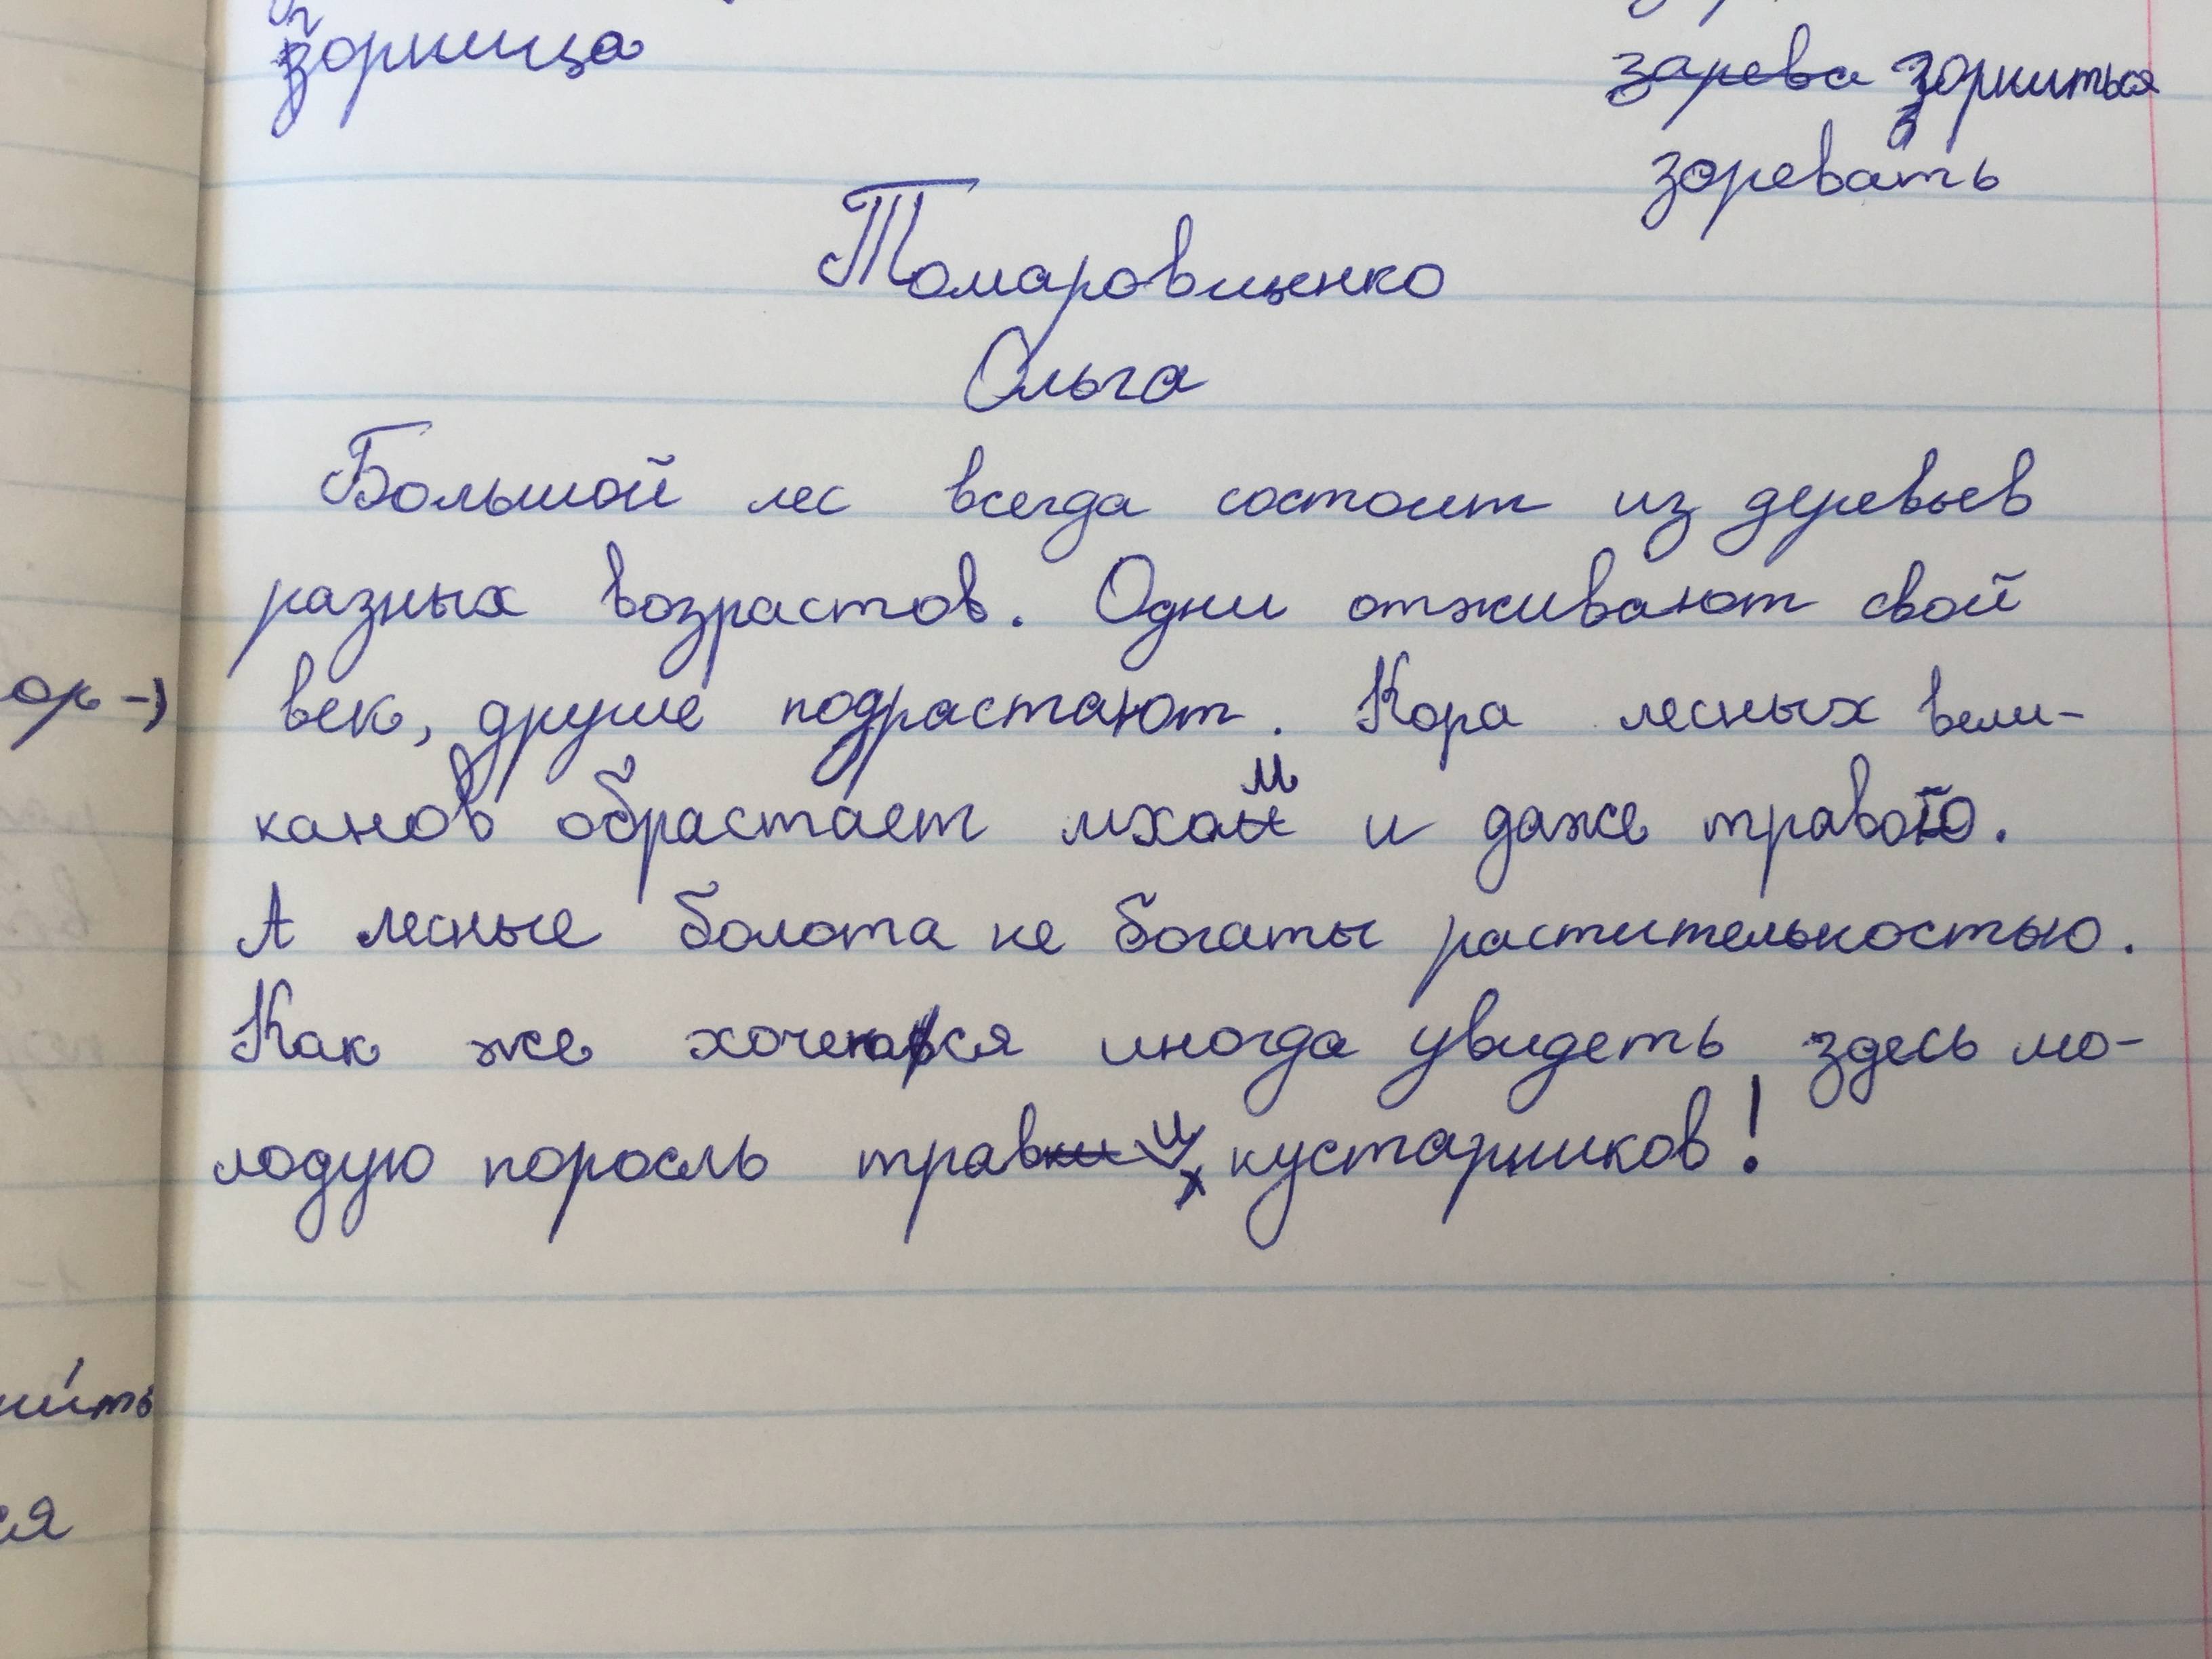 зорница
зарева зорниться
зоревать
Ольга
Большой лес всегда состоит из деревьев
разных возрастов. Одни отживают свой
век, другие подрастают. Кора лесных вели-
канов обрастает мхом и даже травой.
А лесные болота не богаты растительностью.
Как же хочется иногда увидеть здесь мо-
лодую поросль трав и кустарников!
ся